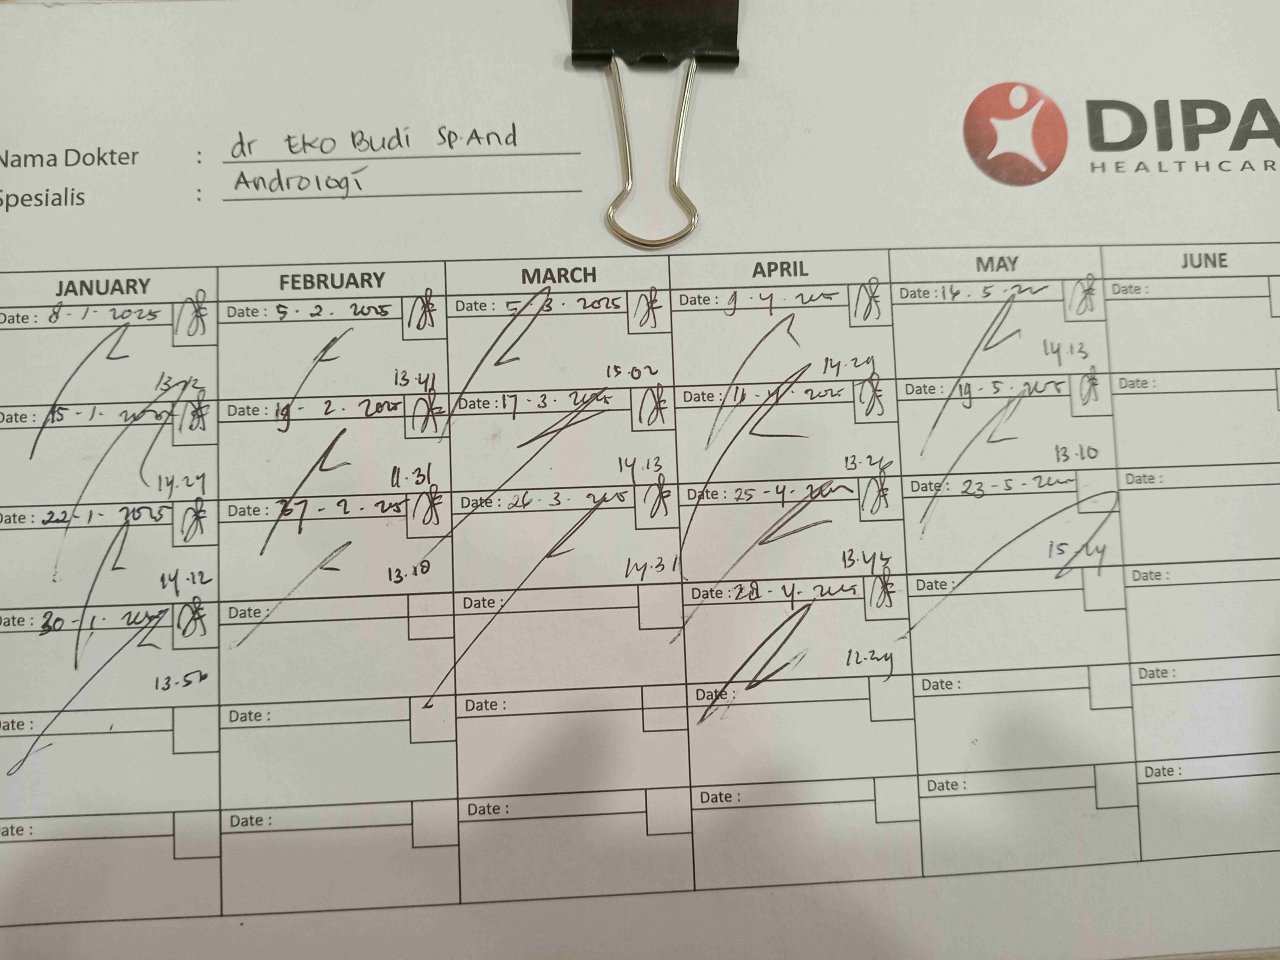 DIPA
HEALTHCAR
Nama Dokter : dr Eko Budi Sp.And
Spesialis : Andrologi
JANUARY FEBRUARY MARCH APRIL MAY JUNE
Date : 8-1-2025 Date : 5.2.2025 Date : 5.3.2025 Date : 9.4.2025 Date : 16.5.2025 Date :
13.12 13.41 15.02 14.29 14.13
Date : 15-1-2025 Date : 19-2.2025 Date : 17-3.2025 Date : 2025 Date : 19-5.2025 Date :
14.27 11.31 14.13 13.26 13.10
Date : 22-1.2025 Date : 27-2.2025 Date : 26-3.2025 Date : 25-4-2025 Date : 23-5-2025 Date :
14.12 13.18 14.31 13.45 15.24
Date : 30-1.2025 Date : Date : Date : 28-4-2025 Date : Date :
13.56 12.29
Date : Date : Date : Date : Date : Date :
Date : Date : Date : Date : Date : Date :